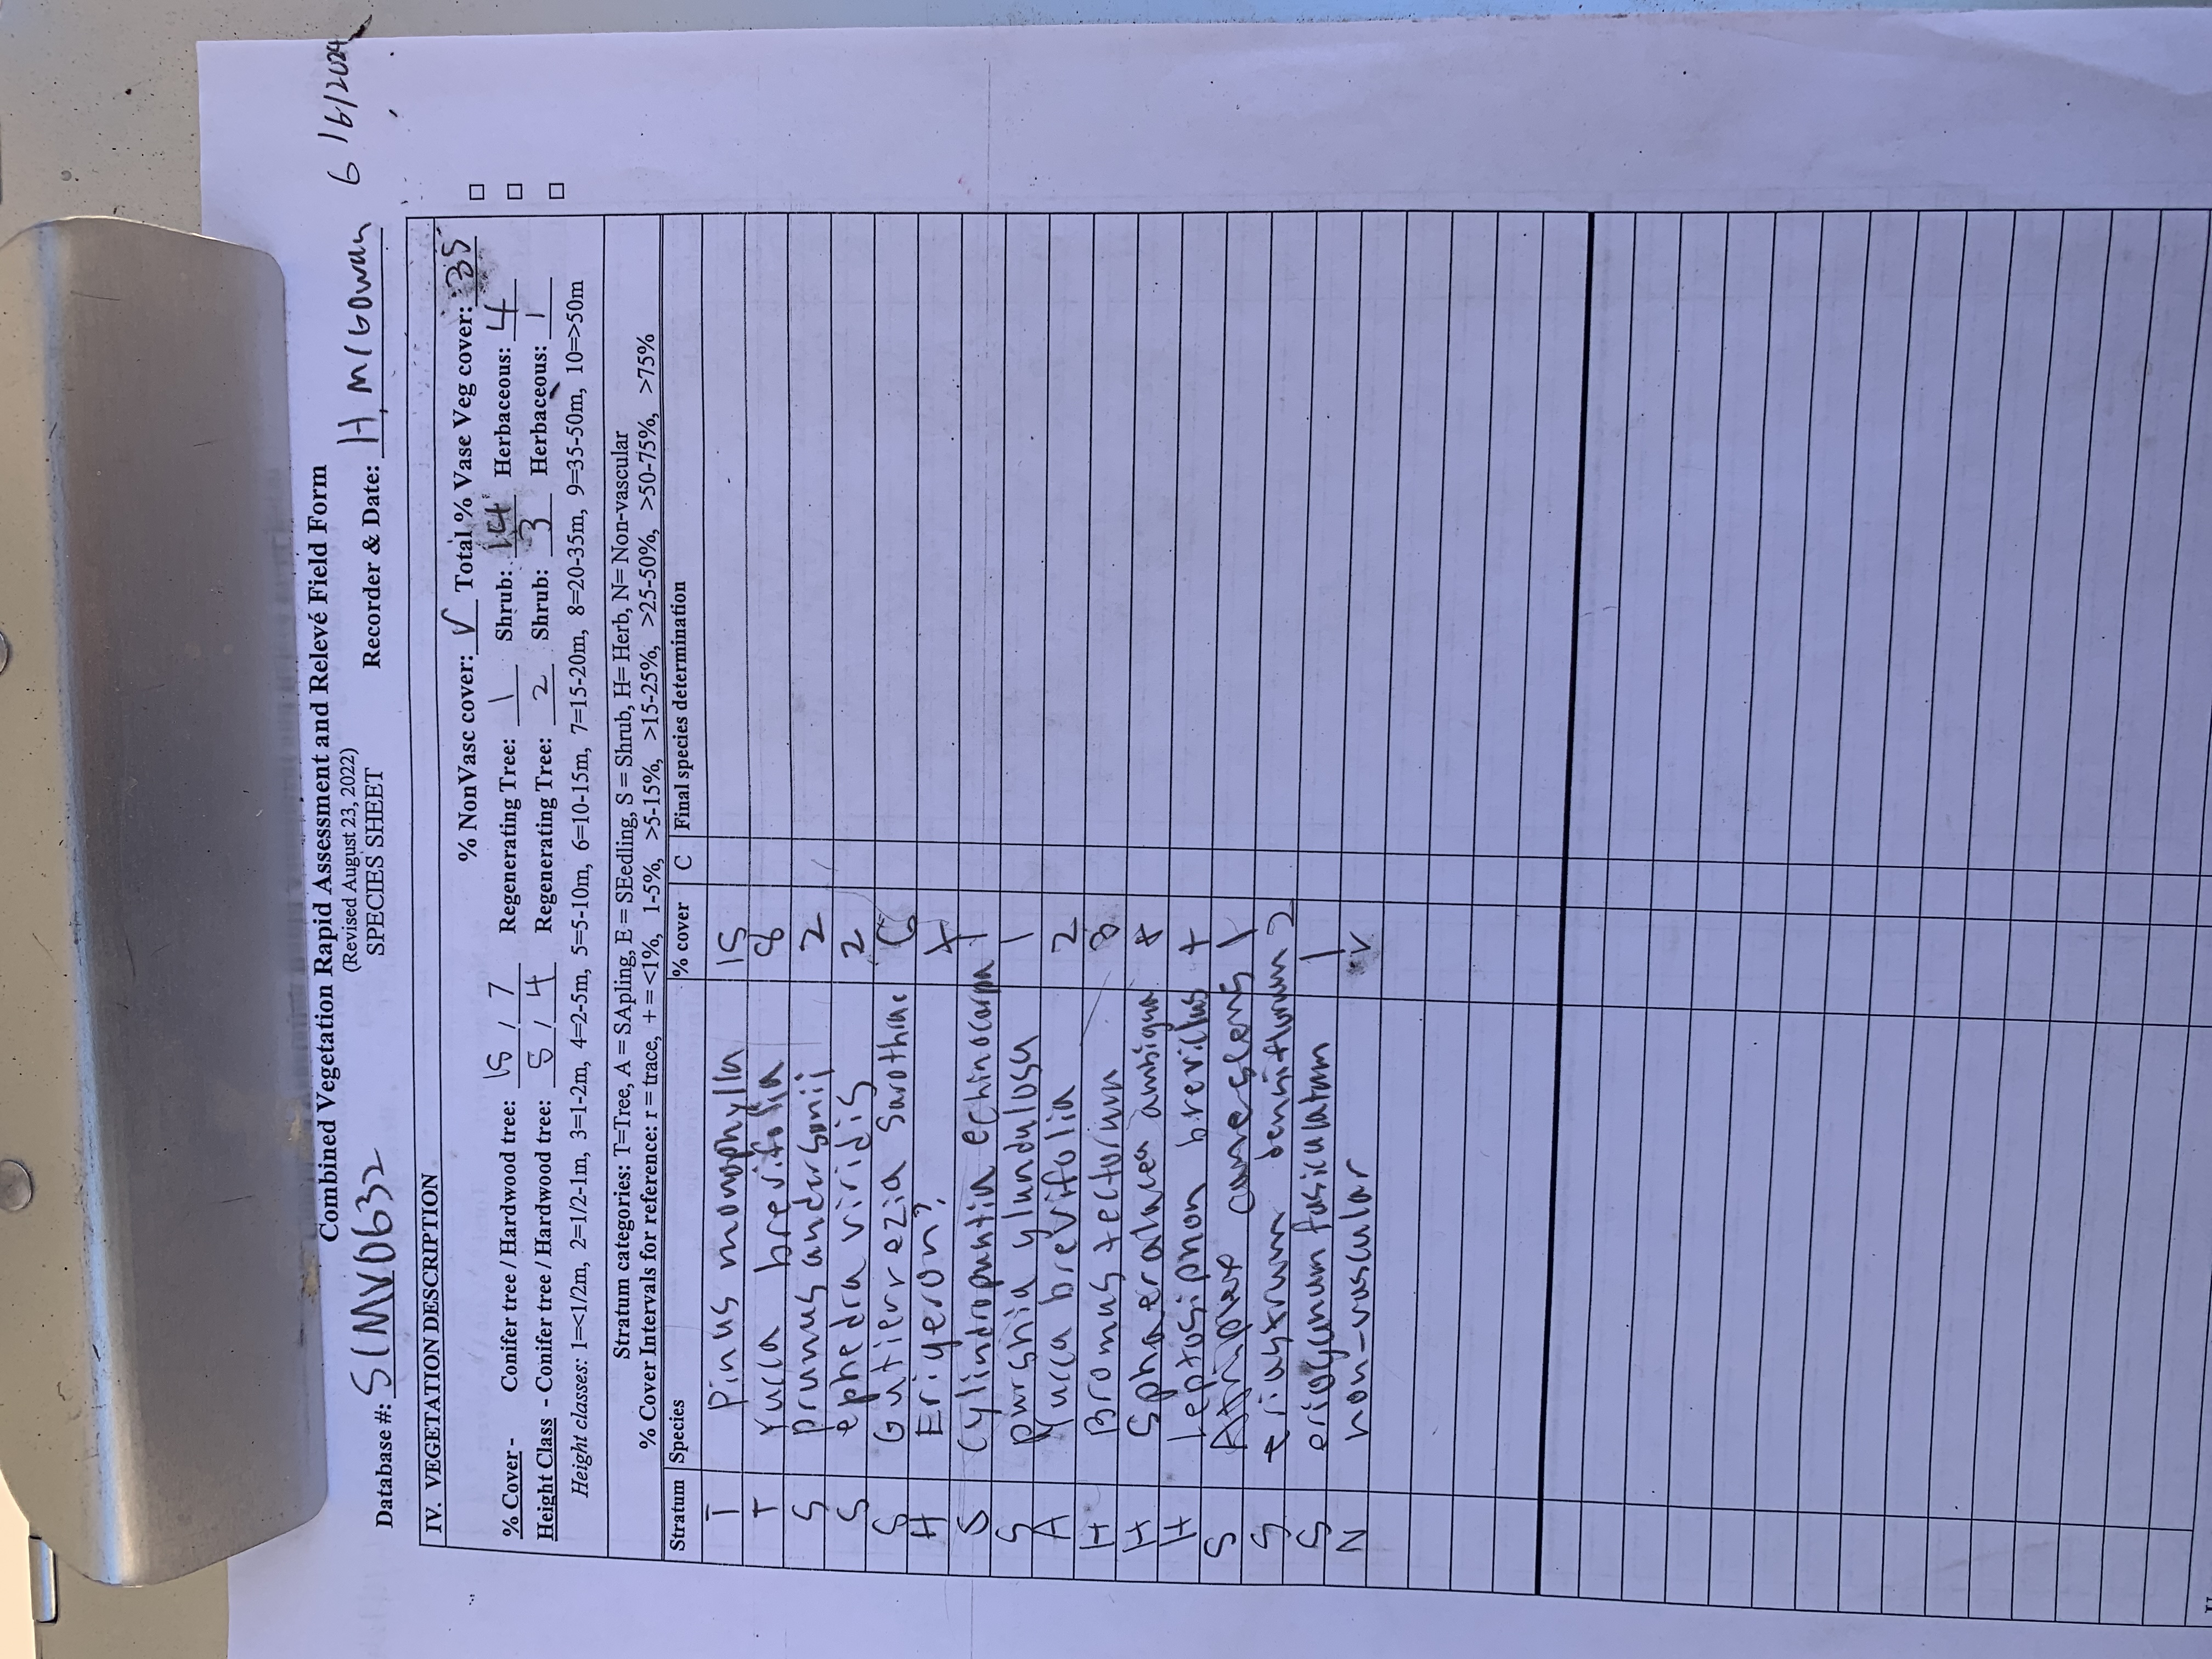 Combined Vegetation Rapid Assessment and Relevé Field Form
(Revised August 23, 2022)
SPECIES SHEET
Database #: SIMV0632 Recorder & Date: H. McGowan 6/6/2024
IV. VEGETATION DESCRIPTION
% NonVasc cover: r Total % Vasc Veg cover: 35
% Cover - Conifer tree / Hardwood tree: 15 / 7 Regenerating Tree: 1 Shrub: 14 Herbaceous: 4
Height Class - Conifer tree / Hardwood tree: 5 / 4 Regenerating Tree: 2 Shrub: 3 Herbaceous: 1
Height classes: 1=<1/2m, 2=1/2-1m, 3=1-2m, 4=2-5m, 5=5-10m, 6=10-15m, 7=15-20m, 8=20-35m, 9=35-50m, 10=>50m
Stratum categories: T=Tree, A = SApling, E = SEedling, S = Shrub, H= Herb, N= Non-vascular
% Cover Intervals for reference: r = trace, + = <1%, 1-5%, >5-15%, >15-25%, >25-50%, >50-75%, >75%
Stratum Species % cover C Final species determination
T Pinus monophylla 15
T Yucca brevifolia 8
S prunus andersonii 2
S ephedra viridis 2
S Gutierrezia Sarothrae 6
H Erigeron? +
S Cylindropuntia echinocarpa 1
S purshia glandulosa 1
A Yucca brevifolia 2
H Bromus tectorum 3
H Sphaeralacea ambigua +
H leptosiphon brevilus +
S Atriplex canescens 1
S eriastrum densiflorum 2
S eriogonum fasiculatum 1
N non-vascular r